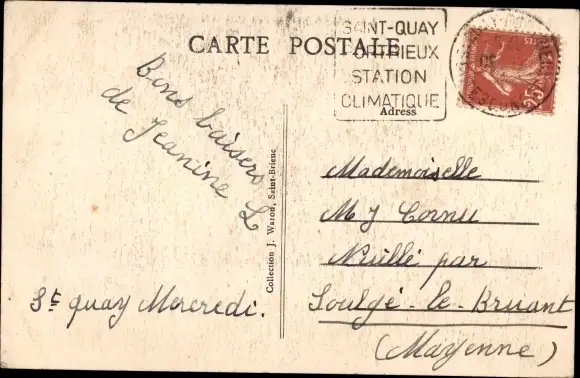 CARTE POSTALE
SAINT-QUAY
PORTRIEUX
STATION
CLIMATIQUE
Adress
Bons baisers
de Jeanine L
St quay Mercredi.
Collection J. Waron, Saint-Brieuc
Mademoiselle
M J Cornu
Nuillé par
Soulgé-le-Bruant
(Mayenne)
25c